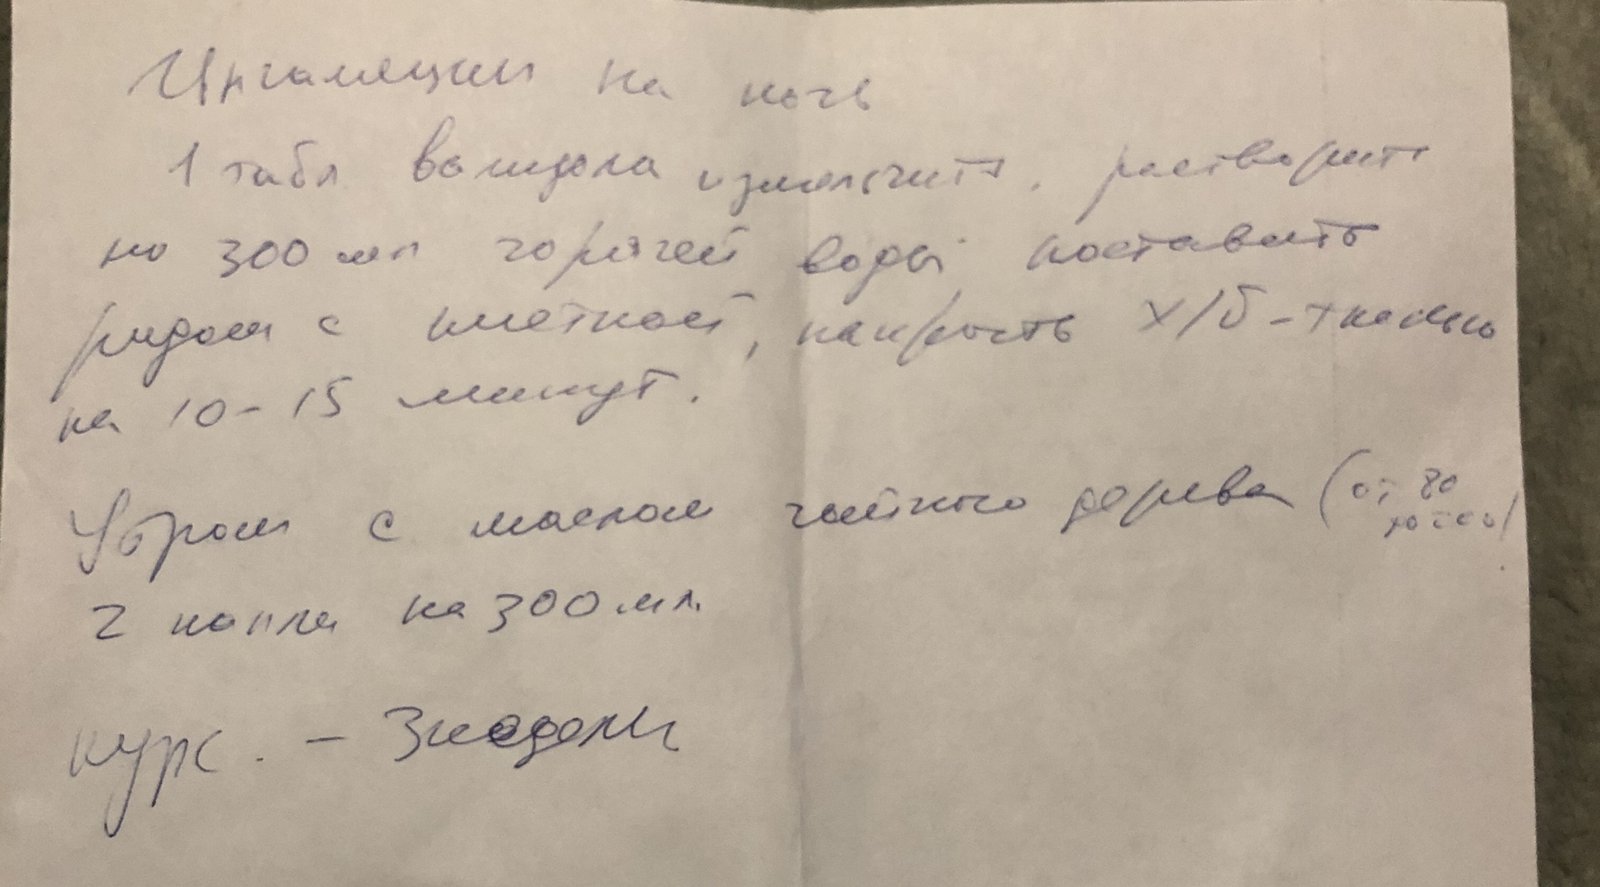 Ингаляции на ночь
1 табл валидола измельчить. растворить
на 300 мл горячей воды, поставить
рядом с клеткой, накрыть х/б-тканью
на 10-15 минут.
Утром с маслом чайного дерева (от
2 капли на 300 мл.
курс. - 3 недели